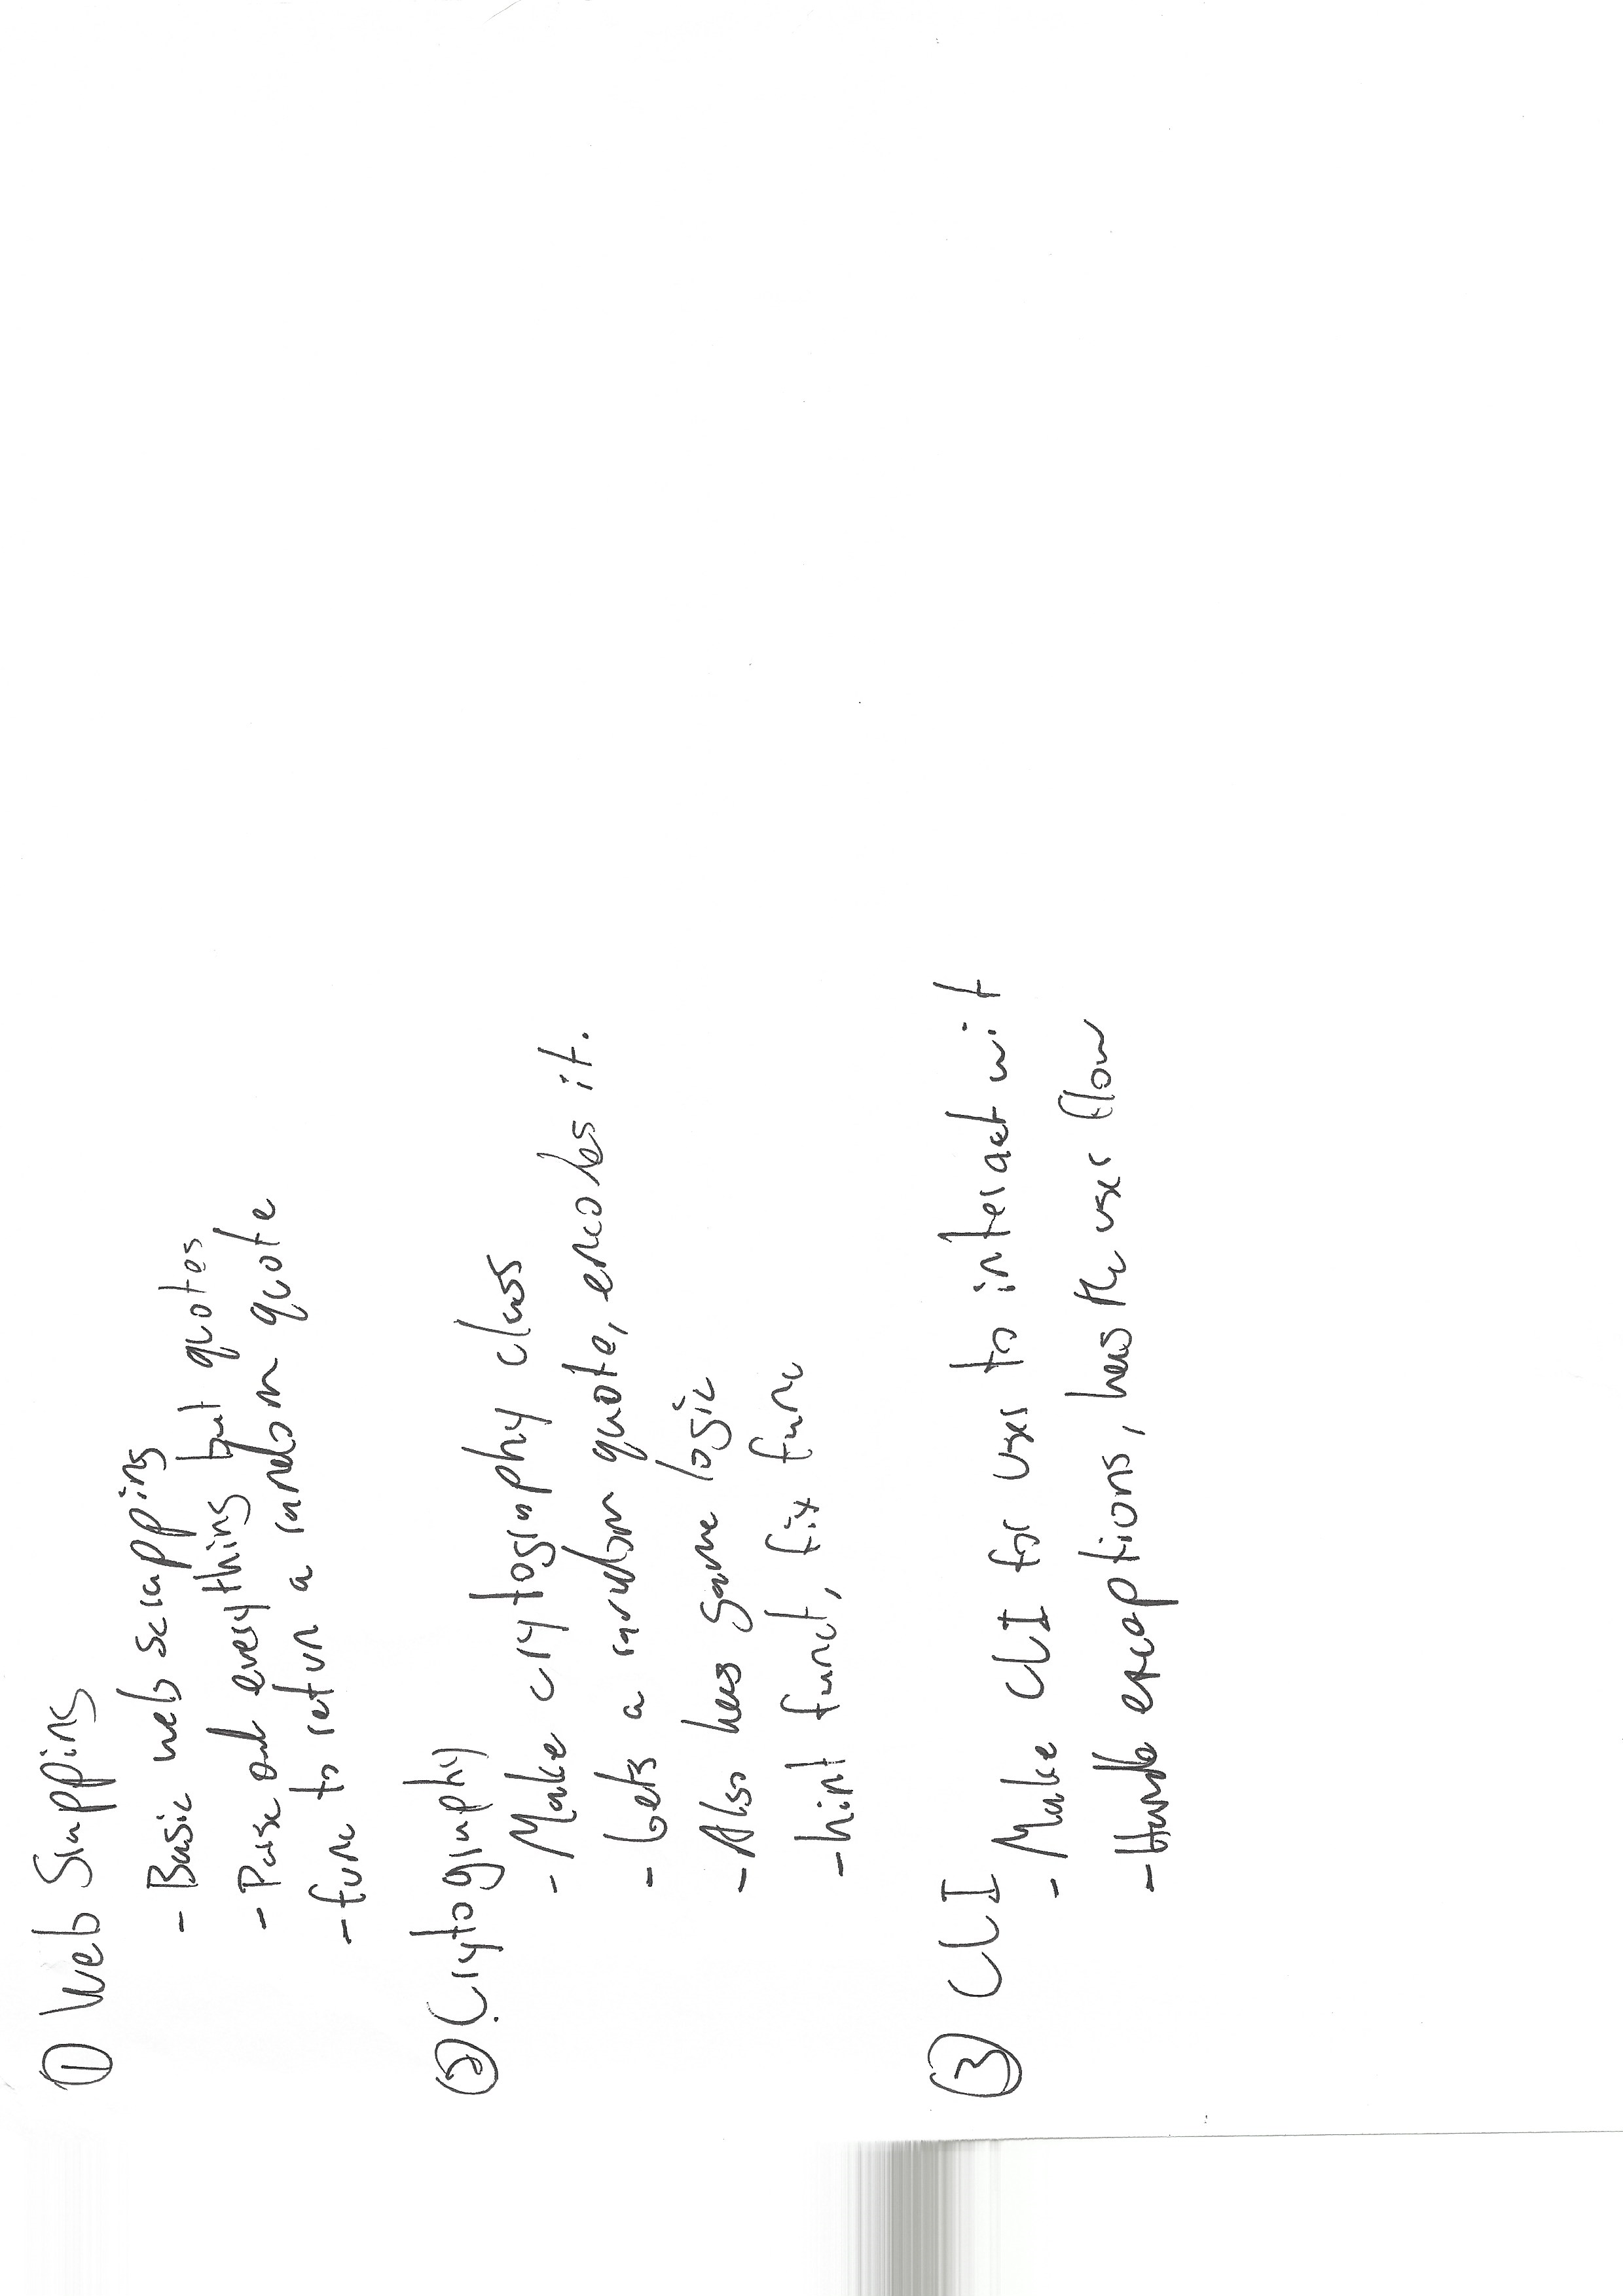 ① Web Srapping
- Basic web scrapping
- Parse out everything but quotes
- func to return a random quote
② Crytography
- Make crytography class
- Gets a random quote, encodes it.
- Also has game logic
- hint funct, fix func
③ CLI
- Make CLI for user to interact wit
- Handle exceptions, has the user flow